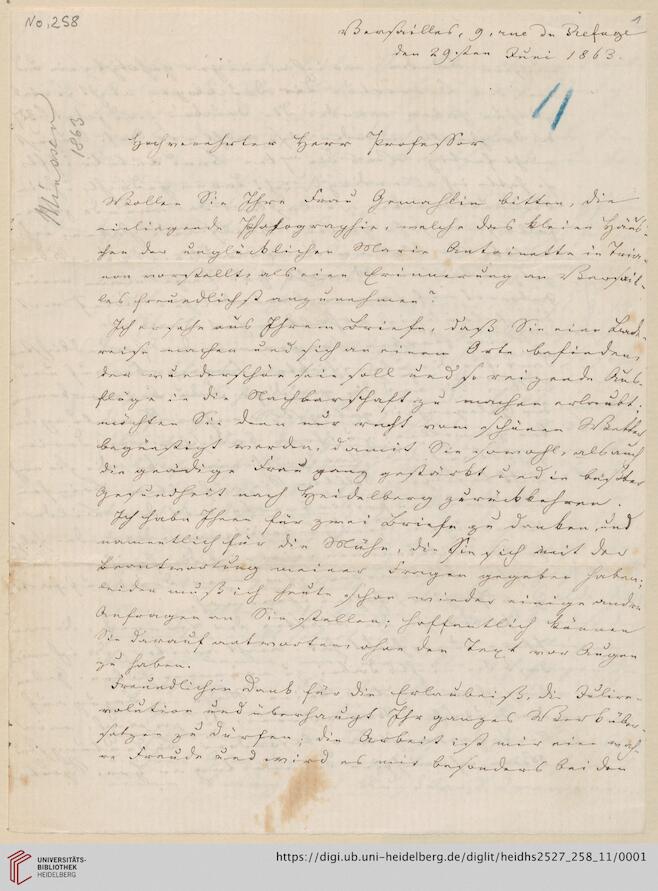 No. 258
1
Versailles, 9, rue du Refuge
den 29sten Juni 1863.
11
Minssen
1863
Hochverehrter Herr Professor
Wollen Sie Ihre Frau Gemahlin bitten, die
einliegende Photographie, welche das kleine Häus-
chen der unglücklichen Marie Antoinette in Tria-
non vorstellt, als eine Erinnerung an Versail-
les freundlichst anzunehmen?
Ich ersehe aus Ihrem Briefe, daß Sie eine Bade-
reise machen und sich an einem Orte befinden,
der wunderschön sein soll und so reizende Aus-
flüge in die Nachbarschaft zu machen erlaubt;
möchten Sie denn nur recht vom schönen Wetter
begünstigt werden, damit Sie sowohl, als auch
die gnädige Frau ganz gestärkt und in bester
Gesundheit nach Heidelberg zurückkehren.
Ich habe Ihnen für zwei Briefe zu danken, und
namentlich für die Mühe, die Sie sich mit der
Beantwortung meiner Fragen gegeben haben;
leider muß ich heute schon wieder einige andre
Anfragen an Sie stellen; hoffentlich können
Sie darauf antworten, ohne den Text vor Augen
zu haben.
Freundlichen Dank für die Erlaubniß, die Julire-
volution und überhaupt Ihr ganzes Werk über-
setzen zu dürfen; die Arbeit ist mir eine wah-
re Freude und wird es mir besonders bei den
UNIVERSITÄTS-
BIBLIOTHEK
HEIDELBERG
https://digi.ub.uni-heidelberg.de/diglit/heidhs2527_258_11/0001